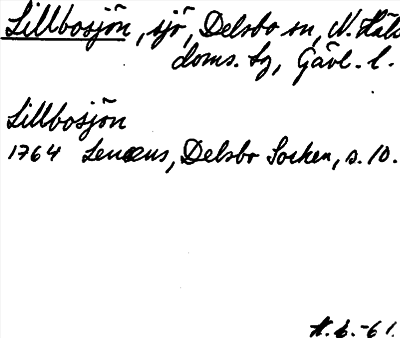 Lillbosjön, sjö, Delsbo sn, N. Häls
doms. sg, Gävl. l.
Lillbosjön
1764 Lenæus, Delsbo Socken, s. 10.
H. L. -61.